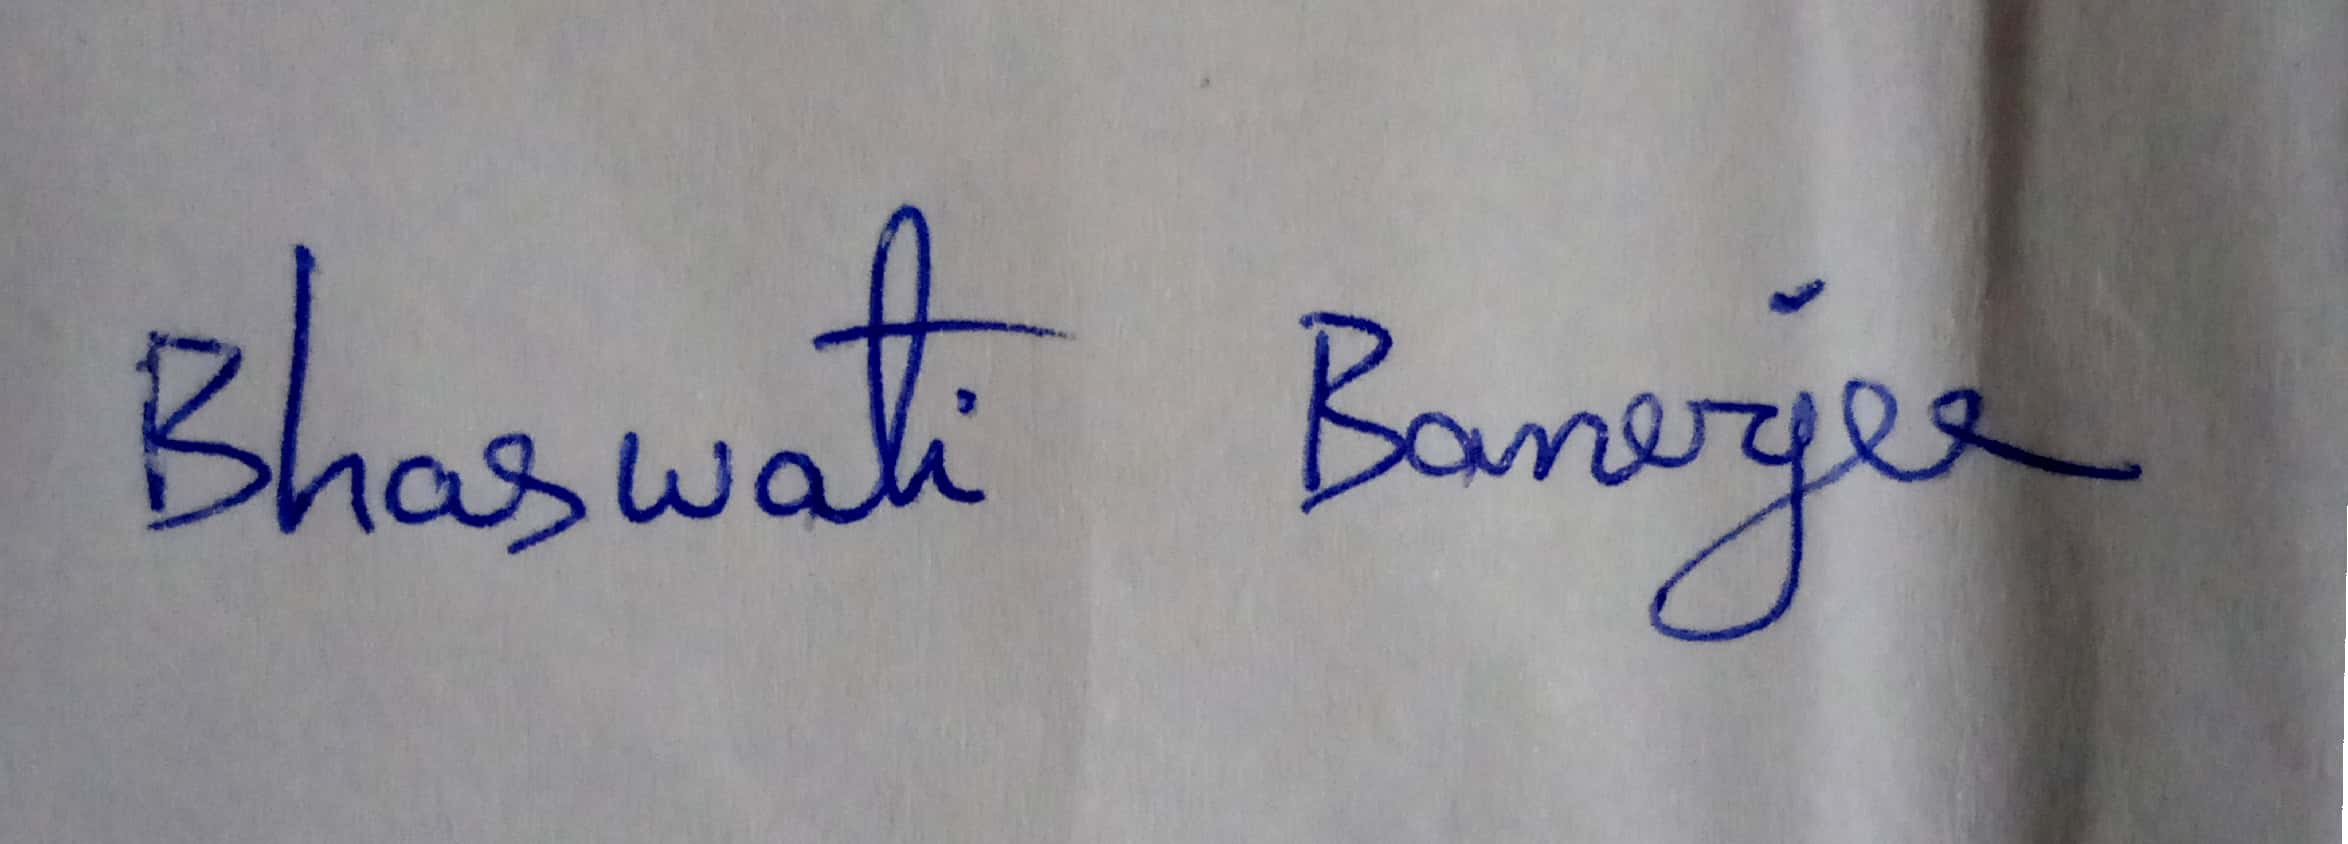 Bhaswati Banerjee